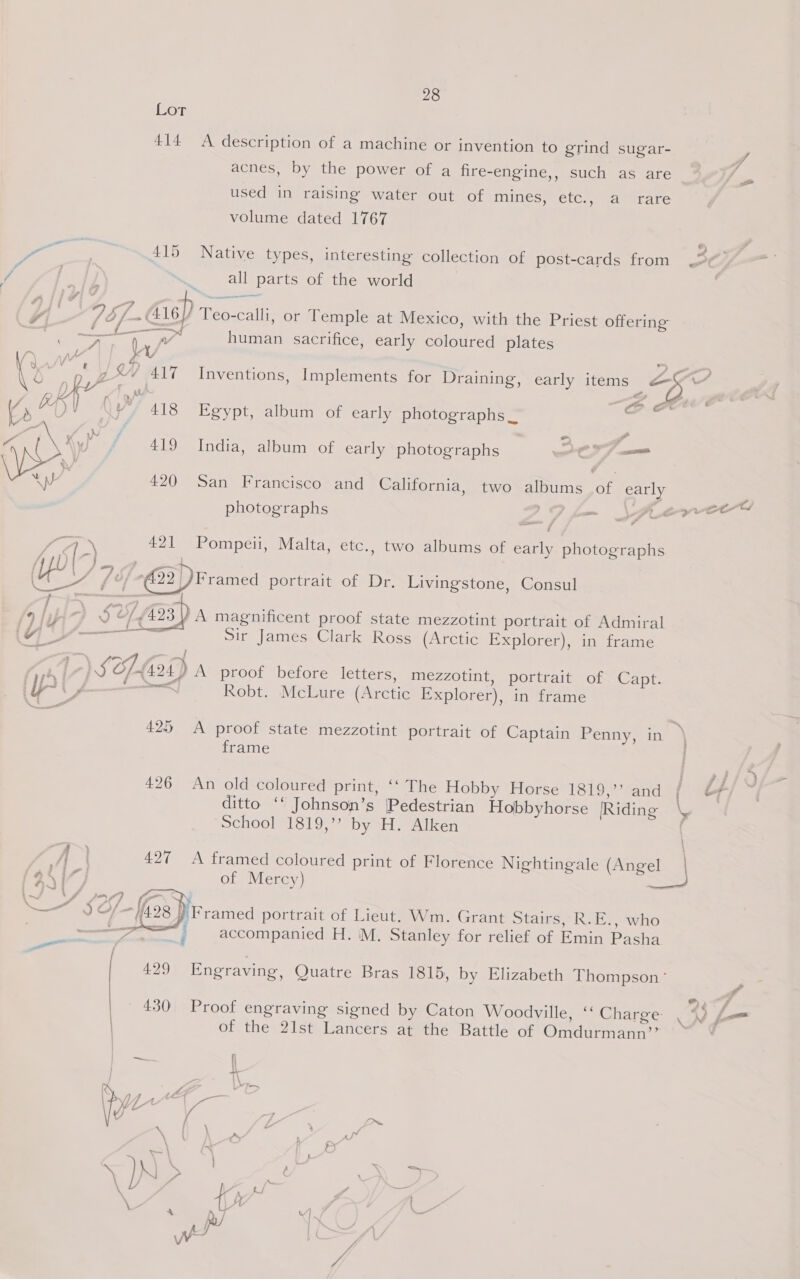 28
Lot
414 A description of a machine or invention to grind sugar-
acnes, by the power of a fire-engine,, such as are
used in raising water out of mines, etc., a rare
volume dated 1767
415 Native types, interesting collection of post-cards from
all parts of the world
416 Teo-calli, or Temple at Mexico, with the Priest offering
human sacrifice, early coloured plates
417 Inventions, Implements for Draining, early items
418 Egypt, album of early photographs
419 India, album of early photographs
420 San Francisco and California, two albums of early
photographs
421 Pompeii, Malta, etc., two albums of early photographs
422 Framed portrait of Dr. Livingstone, Consul
423 A magnificent proof state mezzotint portrait of Admiral
Sir James Clark Ross (Arctic Explorer), in frame
424 A proof before letters, mezzotint, portrait of Capt.
Robt. McLure (Arctic Explorer), in frame
425 A proof state mezzotint portrait of Captain Penny, in
frame
426 An old coloured print, ‘‘ The Hobby Horse 1819,’’ and
ditto ‘‘ Johnson’s Pedestrian Hobbyhorse Riding
School 1819,’’ by H. Alken
427 A framed coloured print of Florence Nightingale (Angel
of Mercy)
428 Framed portrait of Lieut. Wm. Grant Stairs, R.E., who
accompanied H. M. Stanley for relief of Emin Pasha
429 Engraving, Quatre Bras 1815, by Elizabeth Thompson
430 Proof engraving signed by Caton Woodville, ‘‘ Charge
of the 21st Lancers at the Battle of Omdurmann’’